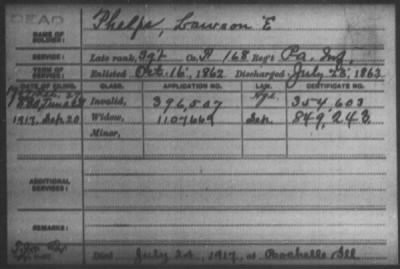 DEAD
NAME OF SOLDIER: Phelps, Lawson E
SERVICE: Late rank, Sgt Co. A 168 Reg't Pa. Inf.
TERM OF SERVICE: Enlisted Oct. 16, 1862 Discharged July 25, 1863
DATE OF FILING. CLASS. APPLICATION NO. LAW. CERTIFICATE NO.
Invalid, 396,507 354,603
1917, Sep. 20 Widow, 1107669 Sep. 849,243
Minor,
ADDITIONAL SERVICES:
REMARKS:
Died July 24, 1917, at Rochelle Ill